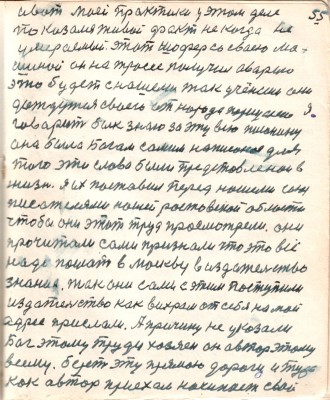 55
а вот моей практики у этом деле
показал живой факт некогда не
умераемый. Этот шофер со своею ма-
шиной он на трассе получил аварию
это будет с нашими так учёными они
дождутся своего от народа порицание. Я.
говорит бык знаю за эту всю
она была Богам самим написаное для
того эти слова были представлены в
жизнь. Я их поставил перед нашими
писателями нашей ростовской области
чтобы они этот труд просмотрели. они
прочитали сами признали что это всё
надо послать в Москву в издательство
знания. так они сами с этим поступили
издательство как вихрам от себя на мой
адрес прислали. А причину не указали
Бог этому труду хозяен он автор этому
всему. берет эту прямою дорогу и туда
как автор приехал начинает свой